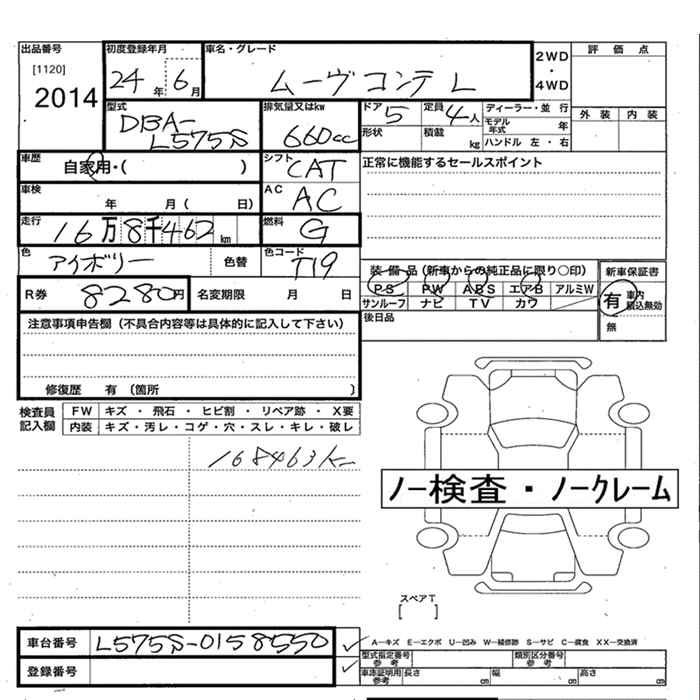 出品番号 初度登録年月 車名・グレード 2WD・4WD 評価点
[1120]
2014 24年 6月 ムーヴコンテ L
型式 排気量又はkw ドア 5 定員 4人 ディーラー・並行 外装 内装
DBA-L575S 660cc 形状 積載 kg モデル年式 年
ハンドル 左・右
車歴 自家用・( ) シフト CAT 正常に機能するセールスポイント
車検 年 月( 日) AC AC
走行 16万8千462km 燃料 G
色 アイボリー 色替 色コード T19 装備品(新車からの純正品に限り○印) 新車保証書
R券 8280円 名変期限 月 日 PS PW ABS エアB アルミW 有 車内積込無効
サンルーフ ナビ TV カワ
注意事項申告欄(不具合内容等は具体的に記入して下さい) 後日品 無
修復歴 有〔箇所 〕
検査員記入欄 FW キズ・飛石・ヒビ割・リペア跡・X要
内装 キズ・汚レ・コゲ・穴・スレ・キレ・破レ
168463km
ノー検査・ノークレーム
スペアT
[ ]
車台番号 L575S-0158550 A-キズ E-エクボ U-凹み W-補修跡 S-サビ C-腐食 XX-交換済
型式指定番号 参考 類別区分番号 参考
登録番号 車庫証明用 参考 長さ cm 幅 cm 高さ cm